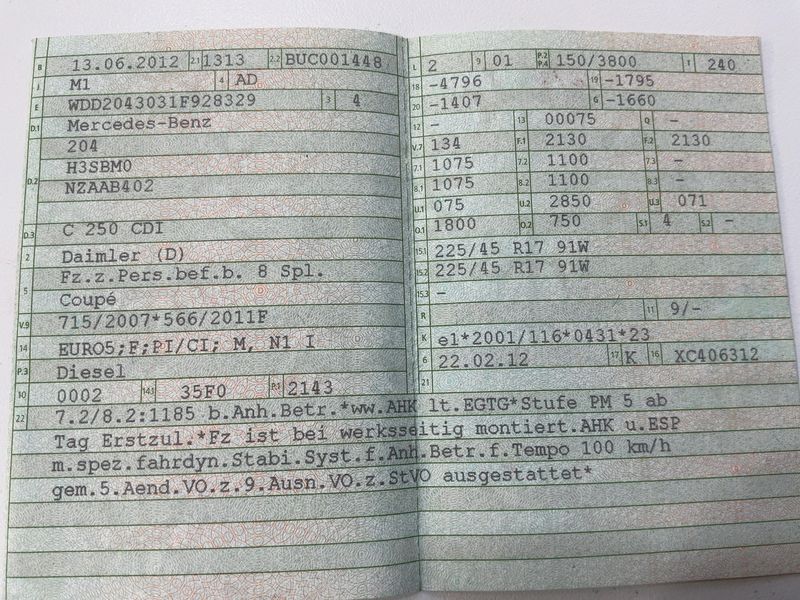 B 13.06.2012 2.1 1313 2.2 BUC001448
J M1 4 AD
E WDD2043031F928329 3 4
D.1 Mercedes-Benz
204
D.2 H3SBM0
NZAAB402
D.3 C 250 CDI
2 Daimler (D)
Fz.z.Pers.bef.b. 8 Spl.
5 Coupé
V.9 715/2007*566/2011F
14 EURO5;F;PI/CI; M, N1 I
P.3 Diesel
10 0002 14.1 35F0 P.1 2143
L 2 9 01 P.2 P.4 150/3800 T 240
18 -4796 19 -1795
20 -1407 G -1660
12 - 13 00075 Q -
V.7 134 F.1 2130 F.2 2130
7.1 1075 7.2 1100 7.3 -
8.1 1075 8.2 1100 8.3 -
U.1 075 U.2 2850 U.3 071
O.1 1800 O.2 750 S.1 4 S.2 -
15.1 225/45 R17 91W
15.2 225/45 R17 91W
15.3 -
R 11 9/-
K e1*2001/116*0431*23
6 22.02.12 17 K 16 XC406312
21
22 7.2/8.2:1185 b.Anh.Betr.*ww.AHK lt.EGTG*Stufe PM 5 ab
Tag Erstzul.*Fz ist bei werksseitig montiert.AHK u.ESP
m.spez.fahrdyn.Stabi.Syst.f.Anh.Betr.f.Tempo 100 km/h
gem.5.Aend.VO.z.9.Ausn.VO.z.StVO ausgestattet*